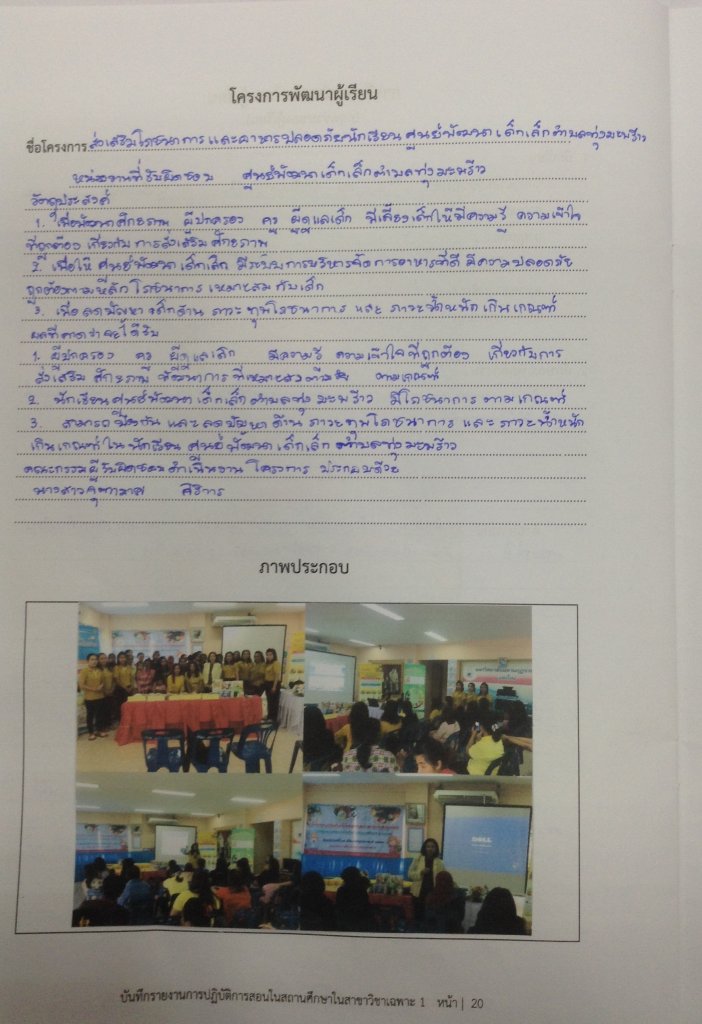 โครงการพัฒนาผู้เรียน
ชื่อโครงการ ส่งเสริมโภชนาการและอาหารปลอดภัยนักเรียนศูนย์พัฒนาเด็กเล็กตำบลทุ่งมะพร้าว
หน่วยงานที่รับผิดชอบ ศูนย์พัฒนาเด็กเล็กตำบลทุ่งมะพร้าว
วัตถุประสงค์
1. เพื่อพัฒนาศักยภาพ ผู้ปกครอง ครู ผู้ดูแลเด็ก พี่เลี้ยงเด็กให้มีความรู้ ความเข้าใจ
ที่ถูกต้อง เกี่ยวกับการส่งเสริมศักยภาพ
2. เพื่อให้ ศูนย์พัฒนาเด็กเล็ก มีระบบการบริหารจัดการอาหารที่ดี มีความปลอดภัย
ถูกต้องตามหลักโภชนาการ เหมาะสมกับเด็ก
3. เพื่อลดปัญหา เด็กด้าน ภาวะทุพโภชนาการ และ ภาวะน้ำหนักเกินเกณฑ์
ผลที่คาดว่าจะได้รับ
1. ผู้ปกครอง ครู ผู้ดูแลเด็ก มีความรู้ ความเข้าใจที่ถูกต้อง เกี่ยวกับการ
ส่งเสริม ศักยภาพ พัฒนาการที่เหมาะสม ตามเกณฑ์
2. นักเรียนศูนย์พัฒนาเด็กเล็กตำบลทุ่งมะพร้าว มีโภชนาการตามเกณฑ์
3. สามารถป้องกัน และลดปัญหาด้าน ภาวะทุพโภชนาการ และ ภาวะน้ำหนัก
เกินเกณฑ์ในนักเรียน ศูนย์พัฒนาเด็กเล็ก ตำบลทุ่งมะพร้าว
คณะกรรมผู้รับผิดชอบดำเนินงาน โครงการ ประกอบด้วย
นางสาว
ภาพประกอบ
DELL
บันทึกรายงานการปฏิบัติการสอนในสถานศึกษาในสาขาวิชาเฉพาะ 1 หน้า | 20